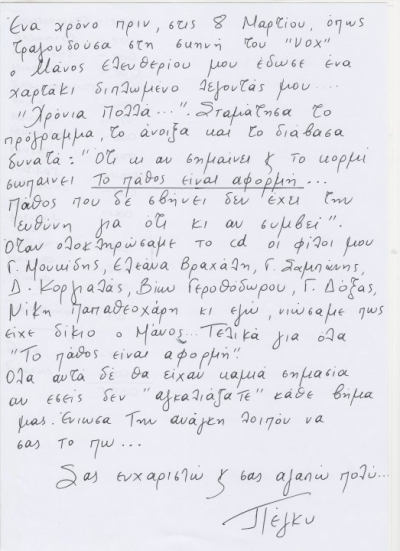 Ένα χρόνο πριν, στις 8 Μαρτίου, όπως
τραγουδούσα στη σκηνή του "VOX"
ο Μάνος Ελευθερίου μου έδωσε ένα
χαρτάκι διπλωμένο λέγοντάς μου....
"Χρόνια Πολλά...". Σταμάτησα το
πρόγραμμα, το άνοιξα και το διάβασα
δυνατά: "Ότι κι αν σημαίνει & το κορμί
σωπαίνει Το πάθος είναι αφορμή...
Πάθος που δε σβήνει δεν έχει την
ευθύνη για ότι κι αν συμβεί".
Όταν ολοκληρώσαμε το cd οι φίλοι μου
Γ. Μουκίδης, Ελεάνα Βραχάλη, Γ. Σαμπάνης,
Δ. Κοργιαλάς, Βίκυ Γεροθόδωρου, Γ. Δόξας,
Νίκη Παπαθεοχάρη κι εγώ, νιώσαμε πως
είχε δίκιο ο Μάνος... Τελικά για όλα
"Το πάθος είναι αφορμή".
Όλα αυτά δε θα είχαν καμιά σημασία
αν εσείς δεν "αγκαλιάζατε" κάθε βήμα
μας. Ένιωσα την ανάγκη λοιπόν να
σας το πω...
Σας ευχαριστώ & σας αγαπώ πολύ...
Πέγκυ